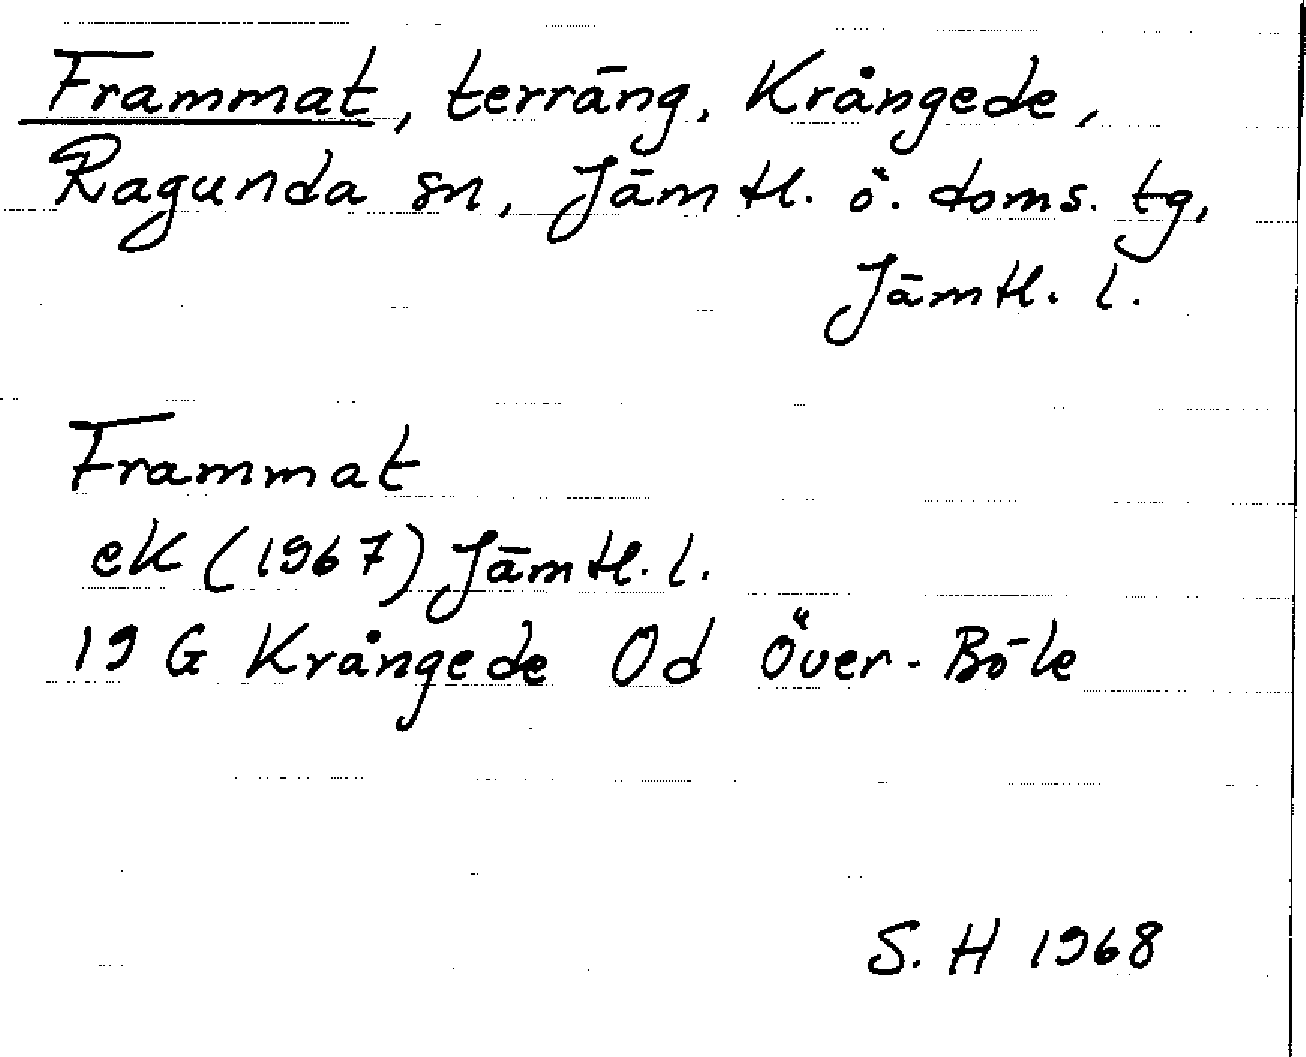 Frammat, terräng, Krångede,
Ragunda sn, Jämtl. ö. doms. tg,
Jämtl. l.
Frammat
ek (1967) Jämtl. l.
19 G Krångede Od Över-Böle
S. H 1968